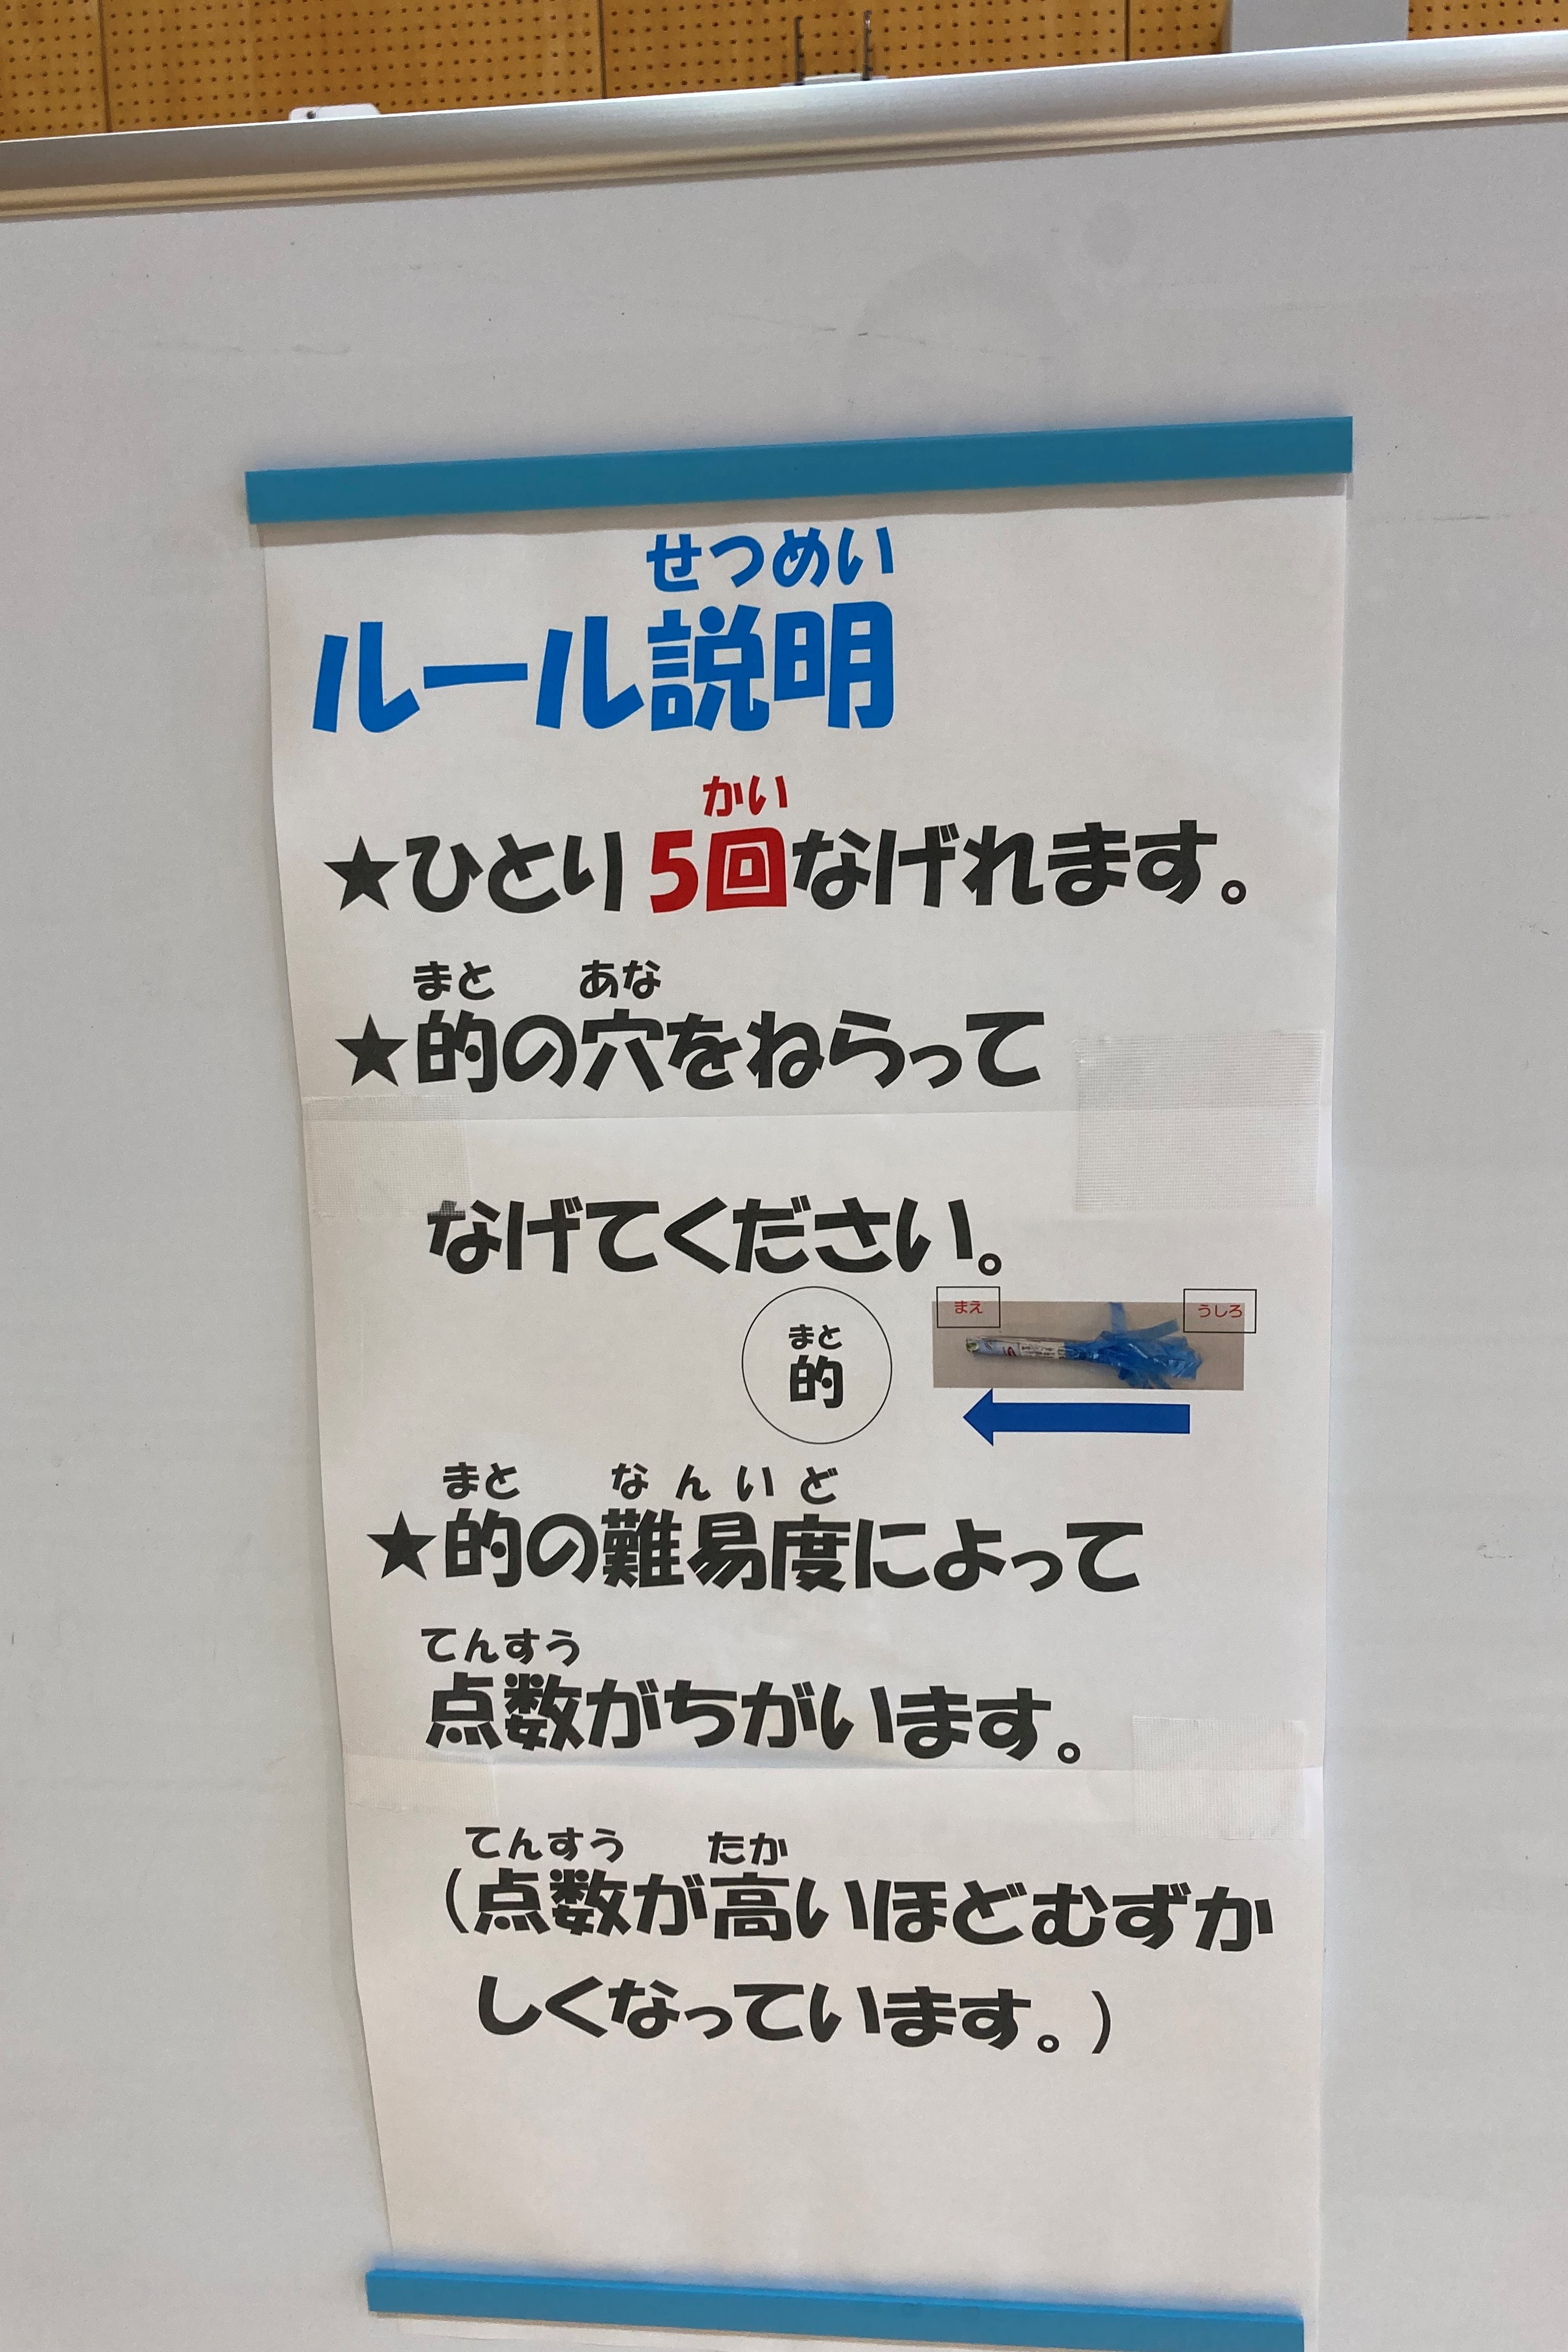 せつめい
ルール説明
かい
★ひとり5回なげれます。
まと あな
★的の穴をねらって
なげてください。
まえ うしろ
まと
的
まと なんいど
★的の難易度によって
てんすう
点数がちがいます。
てんすう たか
(点数が高いほどむずか
しくなっています。)